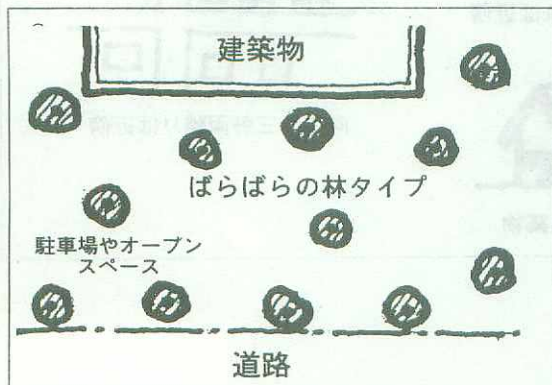 建築物
ばらばらの林タイプ
駐車場やオープン
スペース
道路